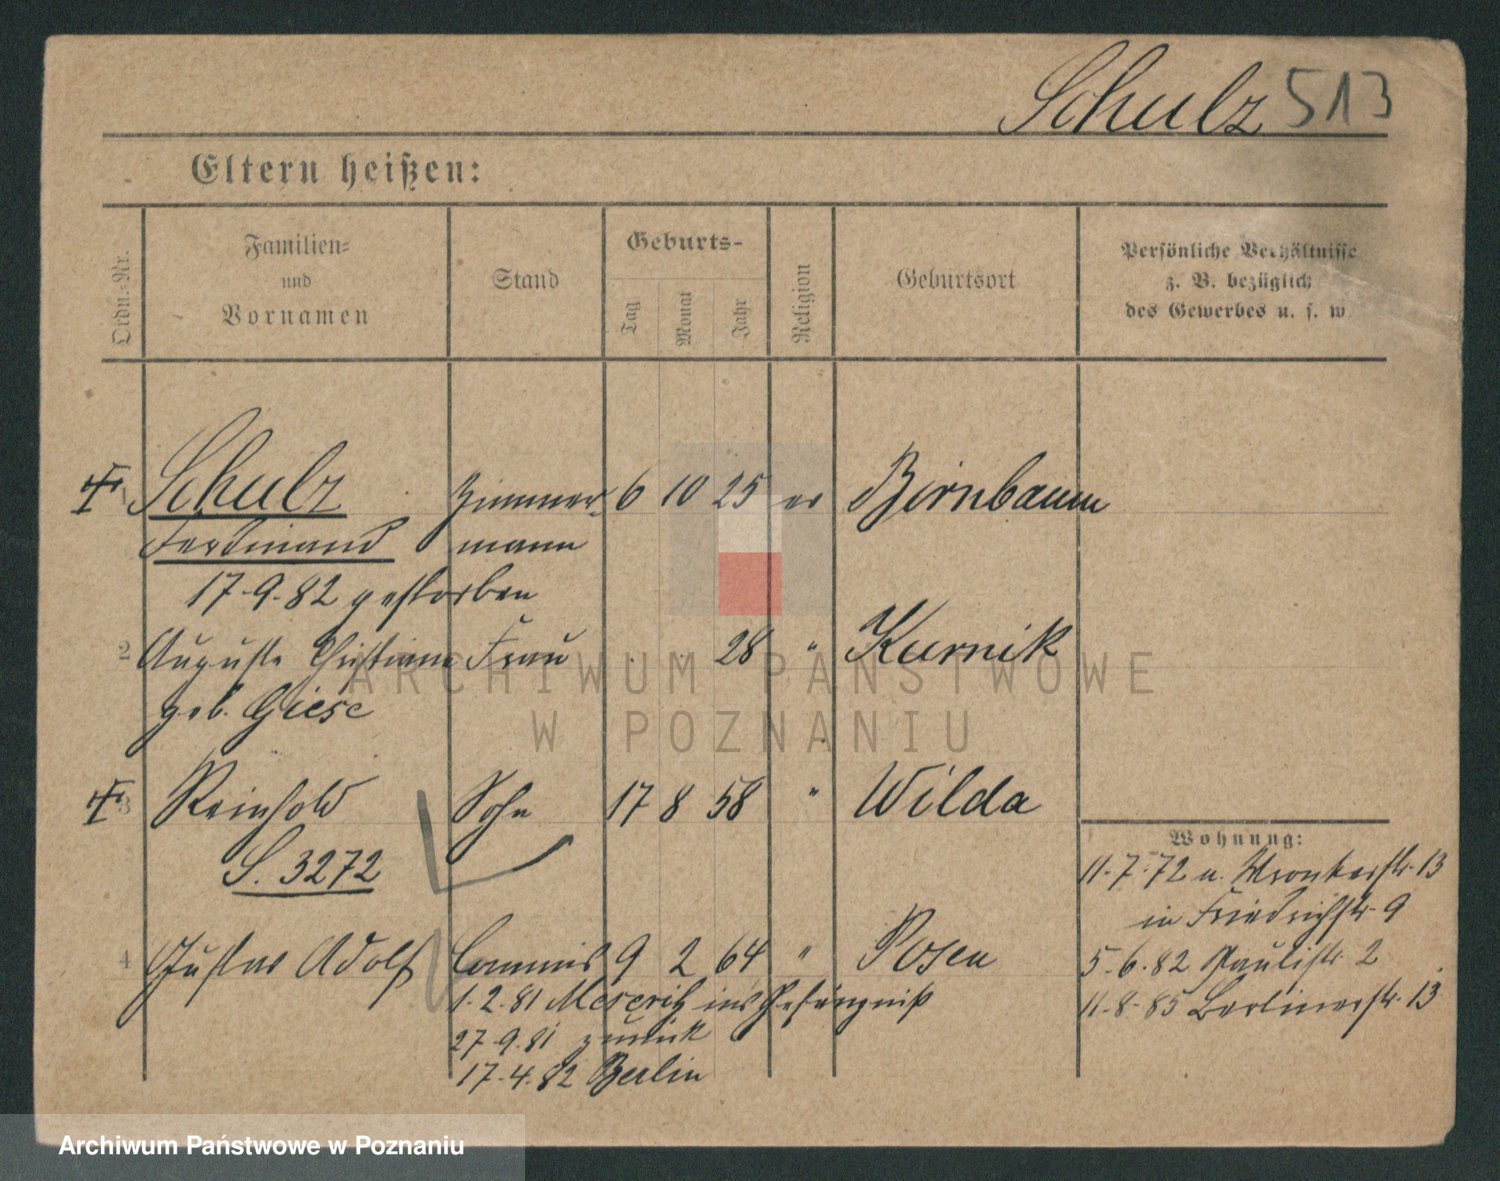 Schulz 513
Eltern heißen:
Ordn.-Nr.
Familien-
und
Vornamen
Stand
Geburts-
Tag
Monat
Jahr
Religion
Geburtsort
Persönliche Verhältnisse
z. B. bezüglich
des Gewerbes u. s. w.
1 Schulz Zimmer- 6 10 25 ev Birnbaum
Ferdinand mann
17.9.82 gestorben
2 Auguste Christiane Frau 28 " Kurnik
geb. Giese
3 Reinhold Sohn 17 8 58 " Wilda
S. 3272
4 Gustav Adolf Commis 9 2 64 " Posen
1.2.81 Meseritz ins Gefängniß
27.9.81 zurück
17.4.82 Berlin
Wohnung:
11.7.72 u. Wronkerstr. 13
in Friedrichstr. 9
5.6.82 Paulistr. 2
11.8.85 Berlinerstr. 13
ARCHIWUM PAŃSTWOWE
W POZNANIU
Archiwum Państwowe w Poznaniu